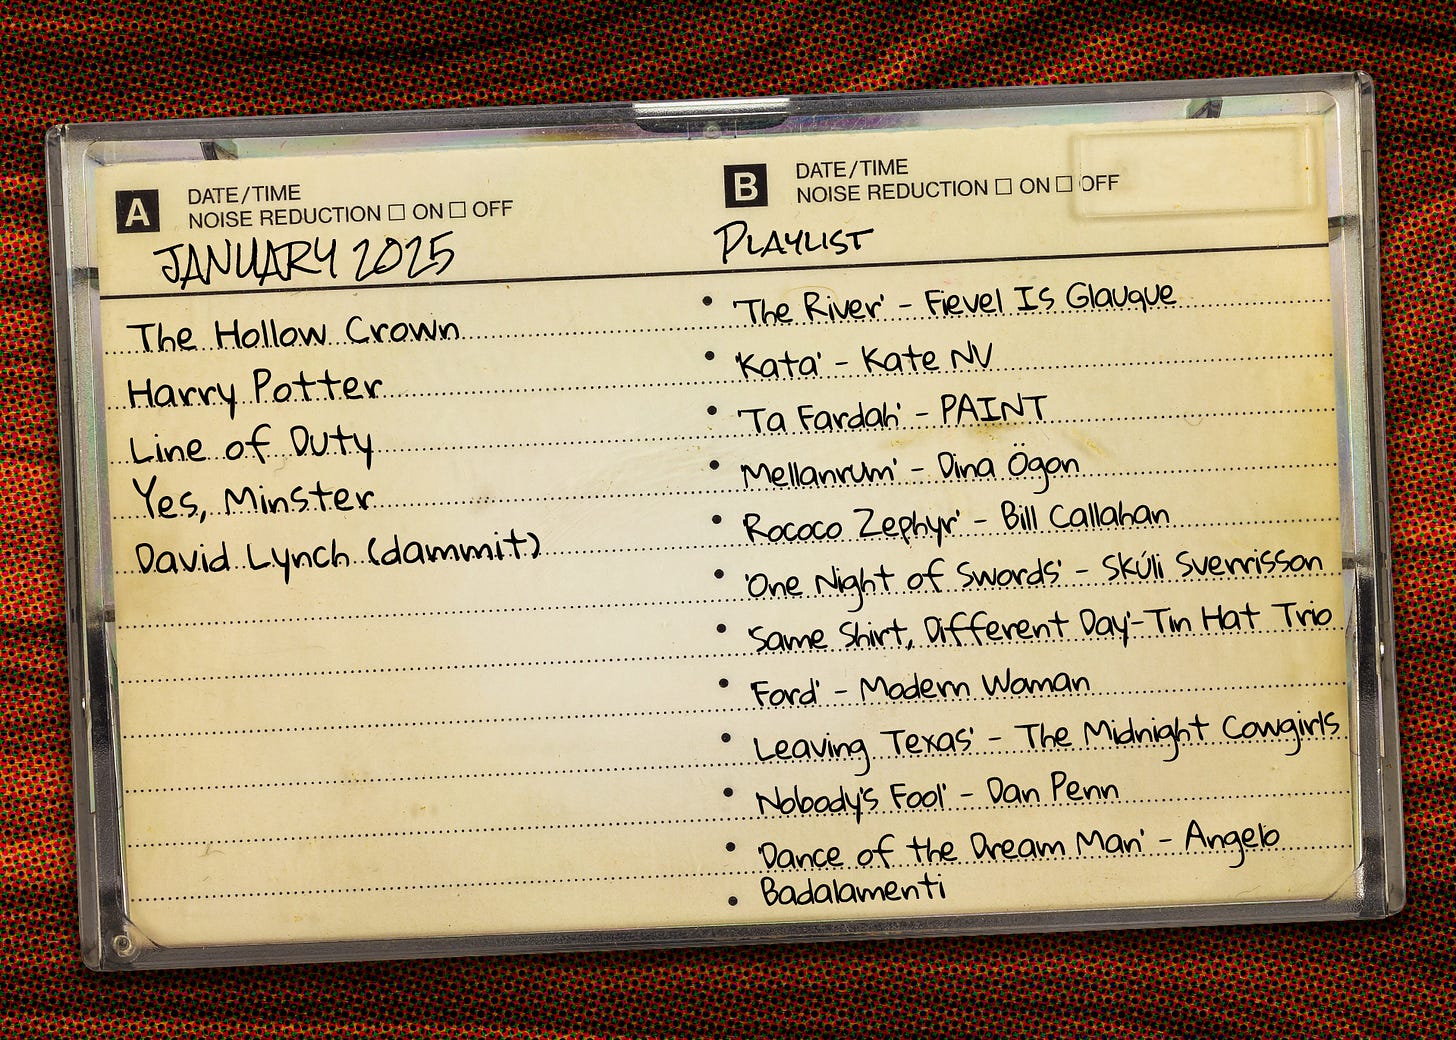 A
DATE/TIME
NOISE REDUCTION ☐ ON ☐ OFF
JANUARY 2025
The Hollow Crown
Harry Potter
Line of Duty
Yes, Minster
David Lynch (dammit)
B
DATE/TIME
NOISE REDUCTION ☐ ON ☐ OFF
PLAYLIST
• 'The River' - Fievel Is Glauque
• 'Kata' - Kate NV
• 'Ta Fardah' - PAINT
• 'Mellanrum' - Dina Ögon
• 'Rococo Zephyr' - Bill Callahan
• 'One Night of Swords' - Skúli Sverrisson
• 'Same Shirt, Different Day' - Tin Hat Trio
• 'Ford' - Modern Woman
• 'Leaving Texas' - The Midnight Cowgirls
• 'Nobody's Fool' - Dan Penn
• 'Dance of the Dream Man' - Angelo
• Badalamenti